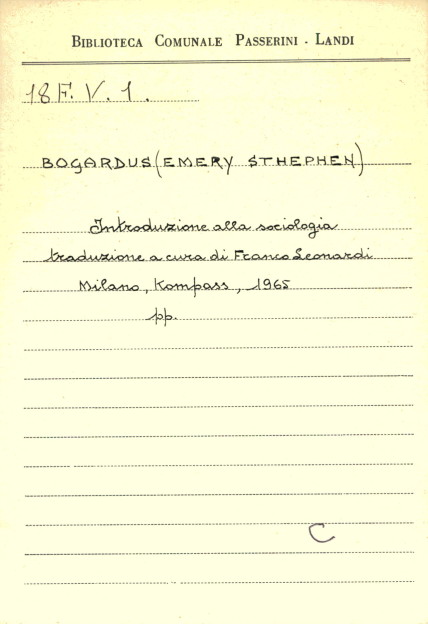 BIBLIOTECA COMUNALE PASSERINI - LANDI
18 F. V. 1.
BOGARDUS (EMERY STHEPHEN)
Introduzione alla sociologia
traduzione a cura di Franco Leonardi
Milano, Kompass, 1965
pp.
C